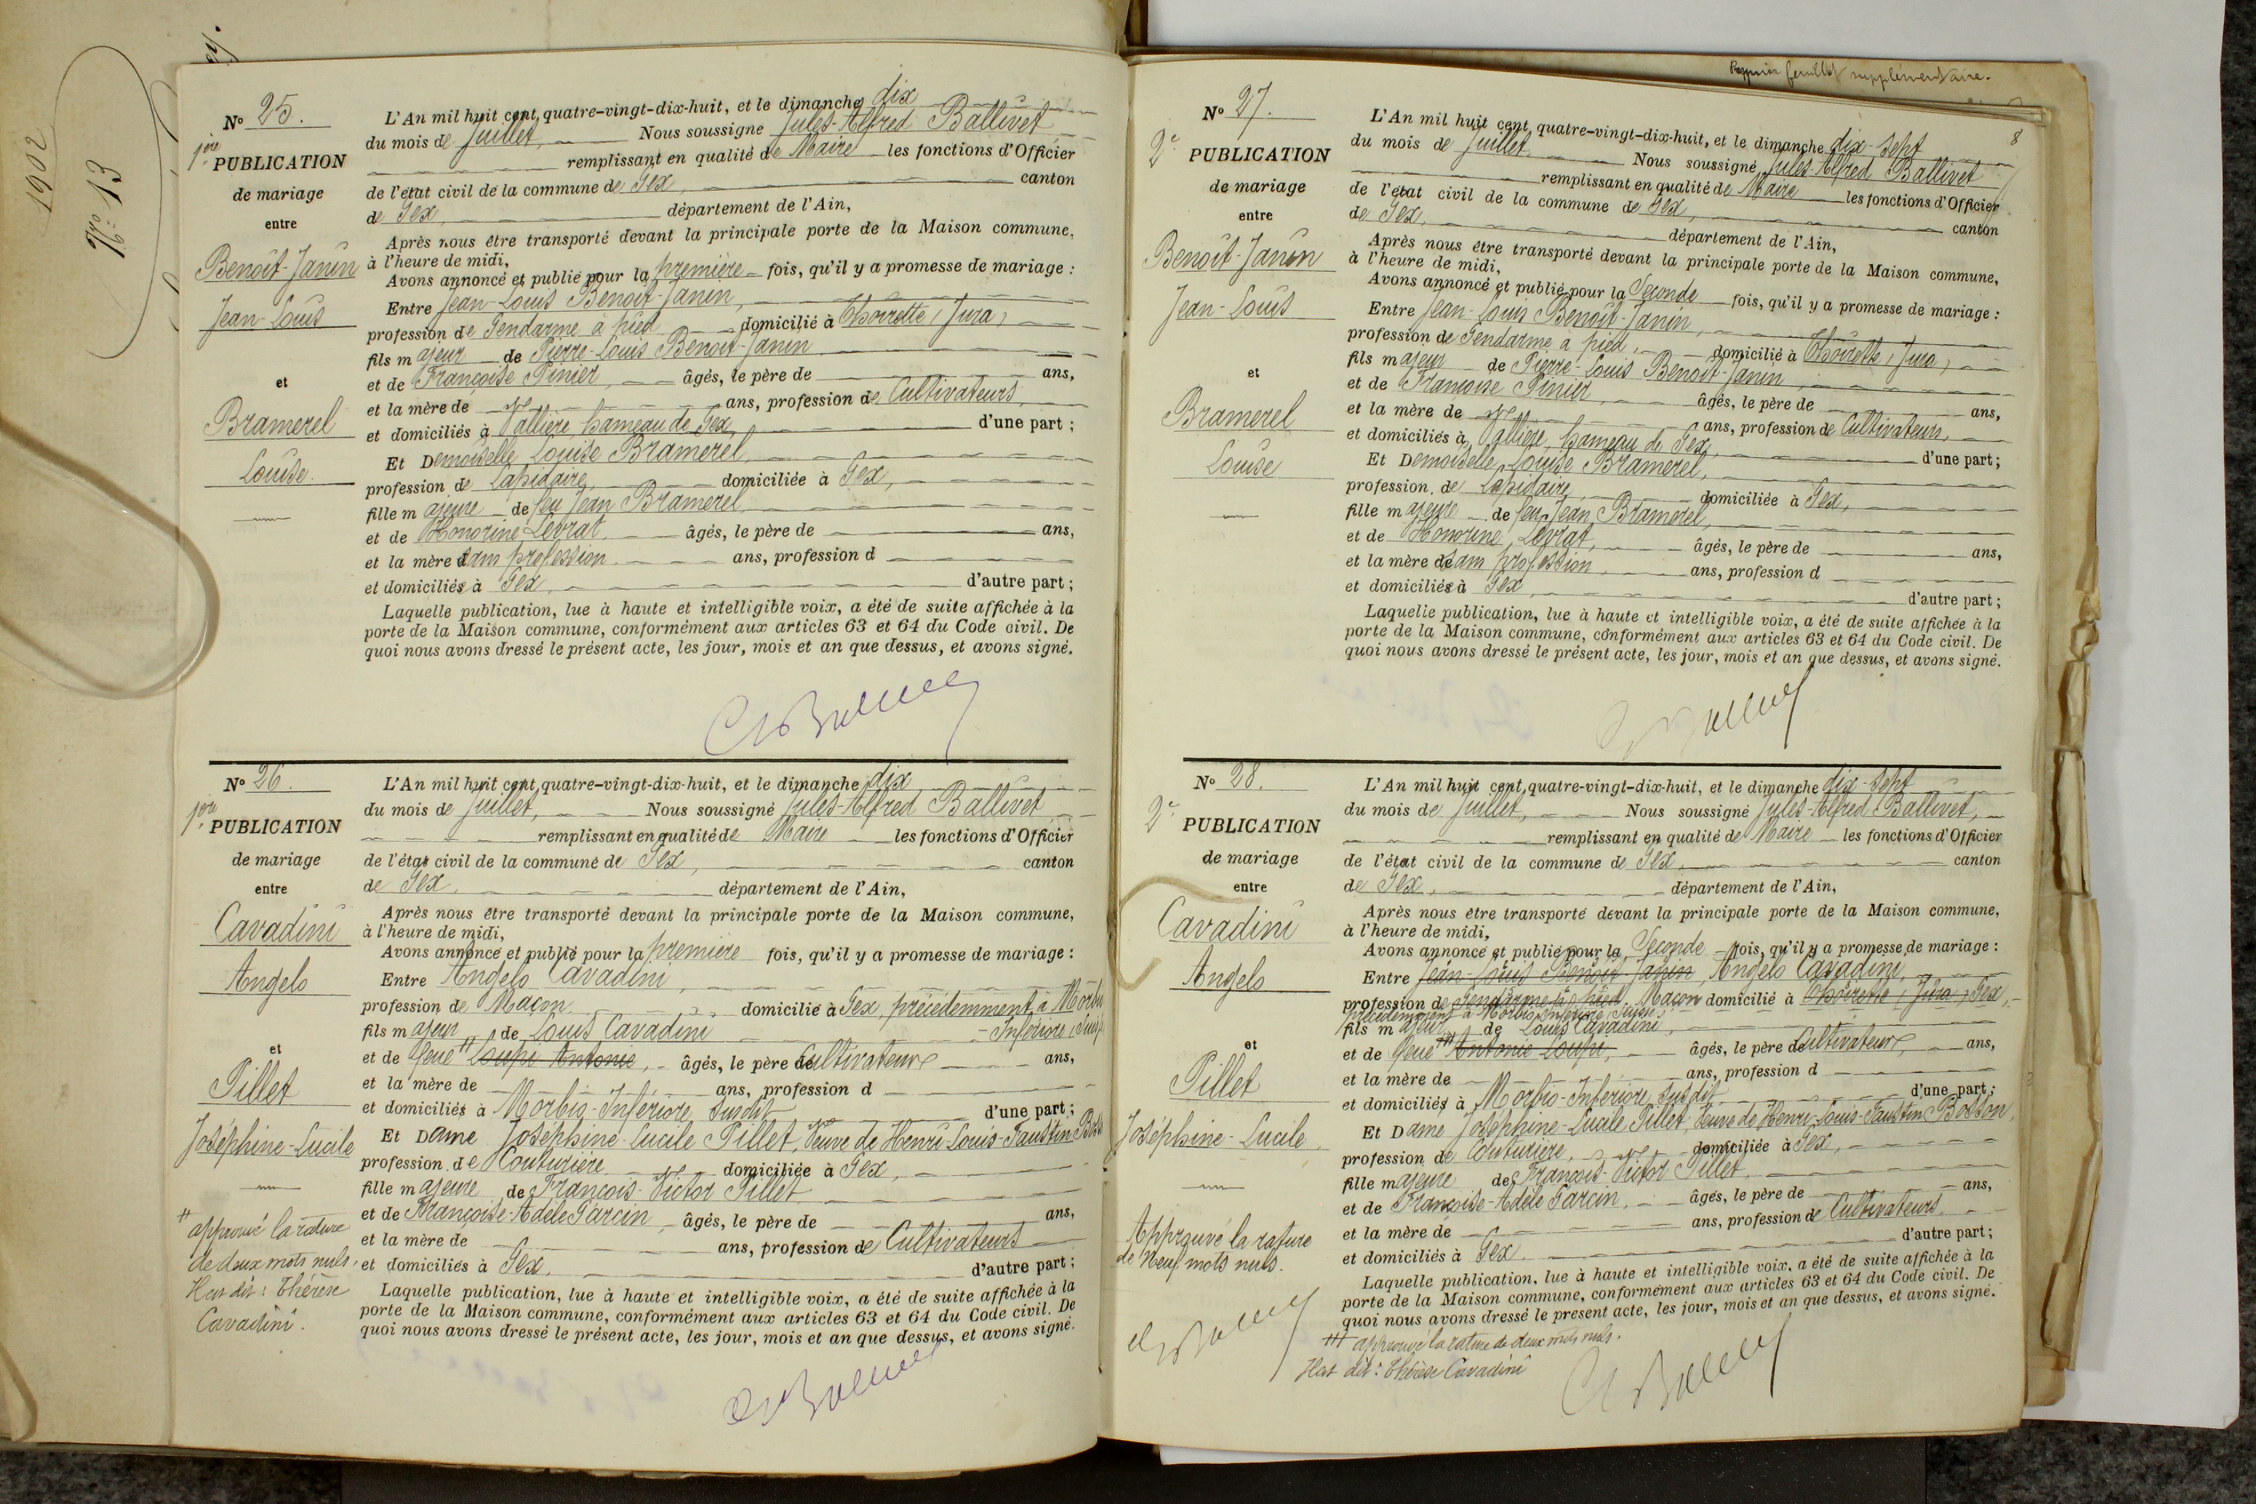 1902
No 13
No 25.
1ère
PUBLICATION
de mariage
entre
Benoît-Janin
Jean-Louis
et
Bramerel
Louise
L'An mil huit cent quatre-vingt-dix-huit, et le dimanche dix
du mois de Juillet, Nous soussigné Jules-Alfred Ballivet
remplissant en qualité de Maire les fonctions d'Officier
de l'état civil de la commune de Gex, canton
de Gex, département de l'Ain,
Après nous être transporté devant la principale porte de la Maison commune,
à l'heure de midi,
Avons annoncé et publié pour la première fois, qu'il y a promesse de mariage :
Entre Jean-Louis Benoît-Janin,
profession de Gendarme à pied domicilié à Thoirette, Jura,
fils majeur de Pierre-Louis Benoît-Janin
et de Françoise Pinier, âgés, le père de ans,
et la mère de ans, profession de Cultivateurs,
et domiciliés à Vallière, hameau de Gex, d'une part ;
Et Demoiselle Louise Bramerel,
profession de Lapidaire, domiciliée à Gex,
fille majeure de feu Jean Bramerel
et de Honorine Levrat âgés, le père de ans,
et la mère sans profession ans, profession d
et domiciliés à Gex, d'autre part ;
Laquelle publication, lue à haute et intelligible voix, a été de suite affichée à la
porte de la Maison commune, conformément aux articles 63 et 64 du Code civil. De
quoi nous avons dressé le présent acte, les jour, mois et an que dessus, et avons signé.
No 26.
1ère
PUBLICATION
de mariage
entre
Cavadini
Angelo
et
Pillet
Joséphine-Lucile
# approuvé la rature
de deux mots nuls.
Has dit : Thérèse
Cavadini.
L'An mil huit cent quatre-vingt-dix-huit, et le dimanche dix
du mois de Juillet, Nous soussigné Jules-Alfred Ballivet,
remplissant en qualité de Maire les fonctions d'Officier
de l'état civil de la commune de Gex, canton
de Gex, département de l'Ain,
Après nous être transporté devant la principale porte de la Maison commune,
à l'heure de midi,
Avons annoncé et publié pour la première fois, qu'il y a promesse de mariage :
Entre Angelo Cavadini,
profession de Maçon domicilié à Gex, précédemment à Morbio
fils majeur de Louis Cavadini Inférior, Suisse
et de feue # Loupi Antonie, âgés, le père de Cultivateur ans,
et la mère de ans, profession d
et domiciliés à Morbio-Inférior, susdit d'une part ;
Et Dame Joséphine-Lucile Pillet, Veuve de Henri-Louis-Faustin
profession de Couturière domiciliée à Gex,
fille majeure de François-Victor Pillet
et de Françoise-Adèle Garcin âgés, le père de ans,
et la mère de ans, profession de Cultivateurs
et domiciliés à Gex. d'autre part ;
Laquelle publication, lue à haute et intelligible voix, a été de suite affichée à la
porte de la Maison commune, conformément aux articles 63 et 64 du Code civil. De
quoi nous avons dressé le présent acte, les jour, mois et an que dessus, et avons signé.
feuillet supplémentaire.
8
No 27.
2e
PUBLICATION
de mariage
entre
Benoît-Janin
Jean-Louis
et
Bramerel
Louise
L'An mil huit cent quatre-vingt-dix-huit, et le dimanche dix-sept
du mois de Juillet Nous soussigné Jules-Alfred Ballivet
remplissant en qualité de Maire les fonctions d'Officier
de l'état civil de la commune de Gex, canton
de Gex, département de l'Ain,
Après nous être transporté devant la principale porte de la Maison commune,
à l'heure de midi,
Avons annoncé et publié pour la Seconde fois, qu'il y a promesse de mariage :
Entre Jean-Louis Benoît-Janin,
profession de Gendarme à pied, domicilié à Thoirette, Jura,
fils majeur de Pierre-Louis Benoît-Janin,
et de Françoise Pinier, âgés, le père de ans,
et la mère de ans, profession de Cultivateurs,
et domiciliés à Vallière, hameau de Gex, d'une part ;
Et Demoiselle Louise Bramerel,
profession de Lapidaire, domiciliée à Gex,
fille majeure de feu Jean Bramerel,
et de Honorine Levrat, âgés, le père de ans,
et la mère de sans profession, ans, profession d
et domiciliés à Gex, d'autre part ;
Laquelle publication, lue à haute et intelligible voix, a été de suite affichée à la
porte de la Maison commune, conformément aux articles 63 et 64 du Code civil. De
quoi nous avons dressé le présent acte, les jour, mois et an que dessus, et avons signé.
No 28.
2e
PUBLICATION
de mariage
entre
Cavadini
Angelo
et
Pillet
Joséphine-Lucile
Approuvé la rature
de Neuf mots nuls.
L'An mil huit cent quatre-vingt-dix-huit, et le dimanche dix-sept
du mois de Juillet, Nous soussigné Jules-Alfred Ballivet,
remplissant en qualité de Maire les fonctions d'Officier
de l'état civil de la commune de Gex, canton
de Gex, département de l'Ain,
Après nous être transporté devant la principale porte de la Maison commune,
à l'heure de midi,
Avons annoncé et publié pour la Seconde fois, qu'il y a promesse de mariage :
Entre Jean-Louis Benoît-Janin, Angelo Cavadini,
profession de Gendarme à pied, Maçon domicilié à Thoirette, Jura, Gex,
précédemment à Morbio-Inférior, Suisse,
fils majeur de Louis Cavadini,
et de feue ### Antonie Loupi, âgés, le père de Cultivateur ans,
et la mère de ans, profession d
et domiciliés à Morbio-Inférior, susdit d'une part ;
Et Dame Joséphine-Lucile Pillet, Veuve de Henri-Louis-Faustin Bosson,
profession de Couturière, domiciliée à Gex,
fille majeure de François-Victor Pillet,
et de Françoise-Adèle Garcin, âgés, le père de ans,
et la mère de ans, profession de Cultivateurs,
et domiciliés à Gex. d'autre part ;
Laquelle publication, lue à haute et intelligible voix, a été de suite affichée à la
porte de la Maison commune, conformément aux articles 63 et 64 du Code civil. De
quoi nous avons dressé le présent acte, les jour, mois et an que dessus, et avons signé.
### approuvé la rature de deux mots nuls.
Has dit : Thérèse Cavadini